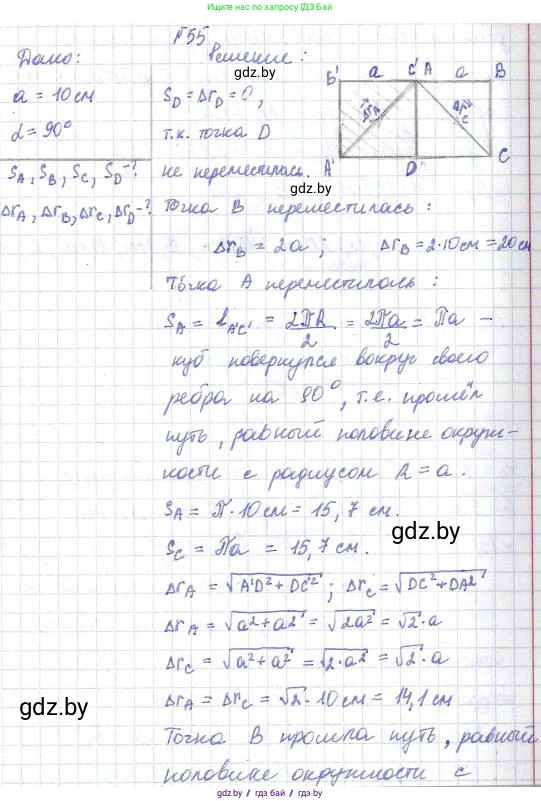 Используется по запросу (ГДЗ РБ)
№55
Дано: Решение:
gdz.by
a = 10 см
α = 90°
S_A, S_B, S_C, S_D - ?
Δr_A, Δr_B, Δr_C, Δr_D - ?
S_D = Δr_D = 0,
т.к. точка D
не переместилась.
gdz.by
B' a C' A a B
Δr_A Δr_C
A' D C
Точка B переместилась:
Δr_B = 2a; Δr_B = 2·10 см = 20 см
Точка A переместилась:
S_A = l_A'C' = 2ПR/2 = 2Пa/2 = Пa -
куб повернулся вокруг своего
ребра на 90°, т.е. прошёл
путь, равный половине окруж-
ности с радиусом R = a.
S_A = П·10 см = 15,7 см.
gdz.by
S_C = Пa = 15,7 см.
Δr_A = √A'D²+DC'²; Δr_C = √DC²+DA²
Δr_A = √a²+a² = √2a² = √2·a
Δr_C = √a²+a² = √2·a² = √2·a
gdz.by
Δr_A = Δr_C = √2·10 см = 14,1 см
Точка B прошла путь, равный
половине окружности с
gdz.by / гдз.бай / gdz.by